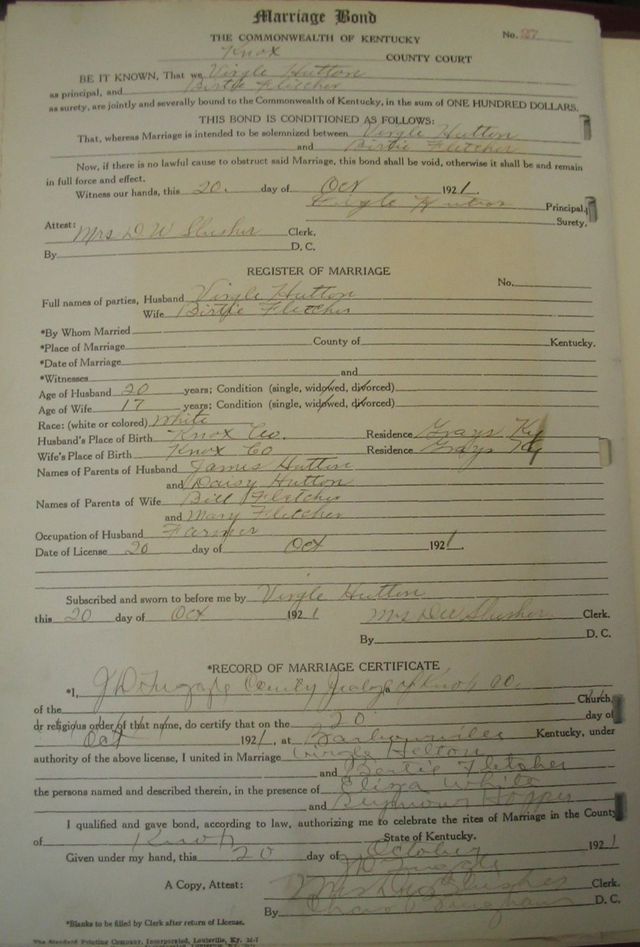 Marriage Bond
THE COMMONWEALTH OF KENTUCKY No.
Knox COUNTY COURT
BE IT KNOWN, That we Virgle Hutton
as principal, and Birtie Fletcher
as surety, are jointly and severally bound to the Commonwealth of Kentucky, in the sum of ONE HUNDRED DOLLARS.
THIS BOND IS CONDITIONED AS FOLLOWS:
That, whereas Marriage is intended to be solemnized between Virgle Hutton
and Birtie Fletcher
Now, if there is no lawful cause to obstruct said Marriage, this bond shall be void, otherwise it shall be and remain
in full force and effect.
Witness our hands, this 20. day of Oct 1921.
Virgle Hutton Principal,
Surety.
Attest: Mrs D W Slusher Clerk.
By D. C.
REGISTER OF MARRIAGE
No.
Full names of parties, Husband Virgle Hutton
Wife Birtie Fletcher
*By Whom Married
*Place of Marriage County of Kentucky.
*Date of Marriage
*Witnesses and
Age of Husband 20 years; Condition (single, widowed, divorced)
Age of Wife 17 years; Condition (single, widowed, divorced)
Race: (white or colored) White
Husband's Place of Birth Knox Co. Residence Grays Ky
Wife's Place of Birth Knox Co Residence Grays Ky
Names of Parents of Husband James Hutton
and Daisy Hutton
Names of Parents of Wife Bill Fletcher
and Mary Fletcher
Occupation of Husband Farmer
Date of License 20 day of Oct 1921.
Subscribed and sworn to before me by Virgle Hutton
this 20 day of Oct 1921 Mrs D W Slusher Clerk.
By D. C.
*RECORD OF MARRIAGE CERTIFICATE
*I, County Judge of Knox Co.
of the Church,
or religious order of that name, do certify that on the 20 day of
Oct 1921, at Barbourville Kentucky, under
authority of the above license, I united in Marriage Virgle Helton
and Bertie Fletcher
the persons named and described therein, in the presence of Eliza White
and Seymour Hopper
I qualified and gave bond, according to law, authorizing me to celebrate the rites of Marriage in the County
of Knox State of Kentucky.
Given under my hand, this 20 day of October 1921
A Copy, Attest: Mrs D W Slusher Clerk.
By D. C.
*Blanks to be filled by Clerk after return of License.
The Standard Printing Company, Incorporated, Louisville, Ky.